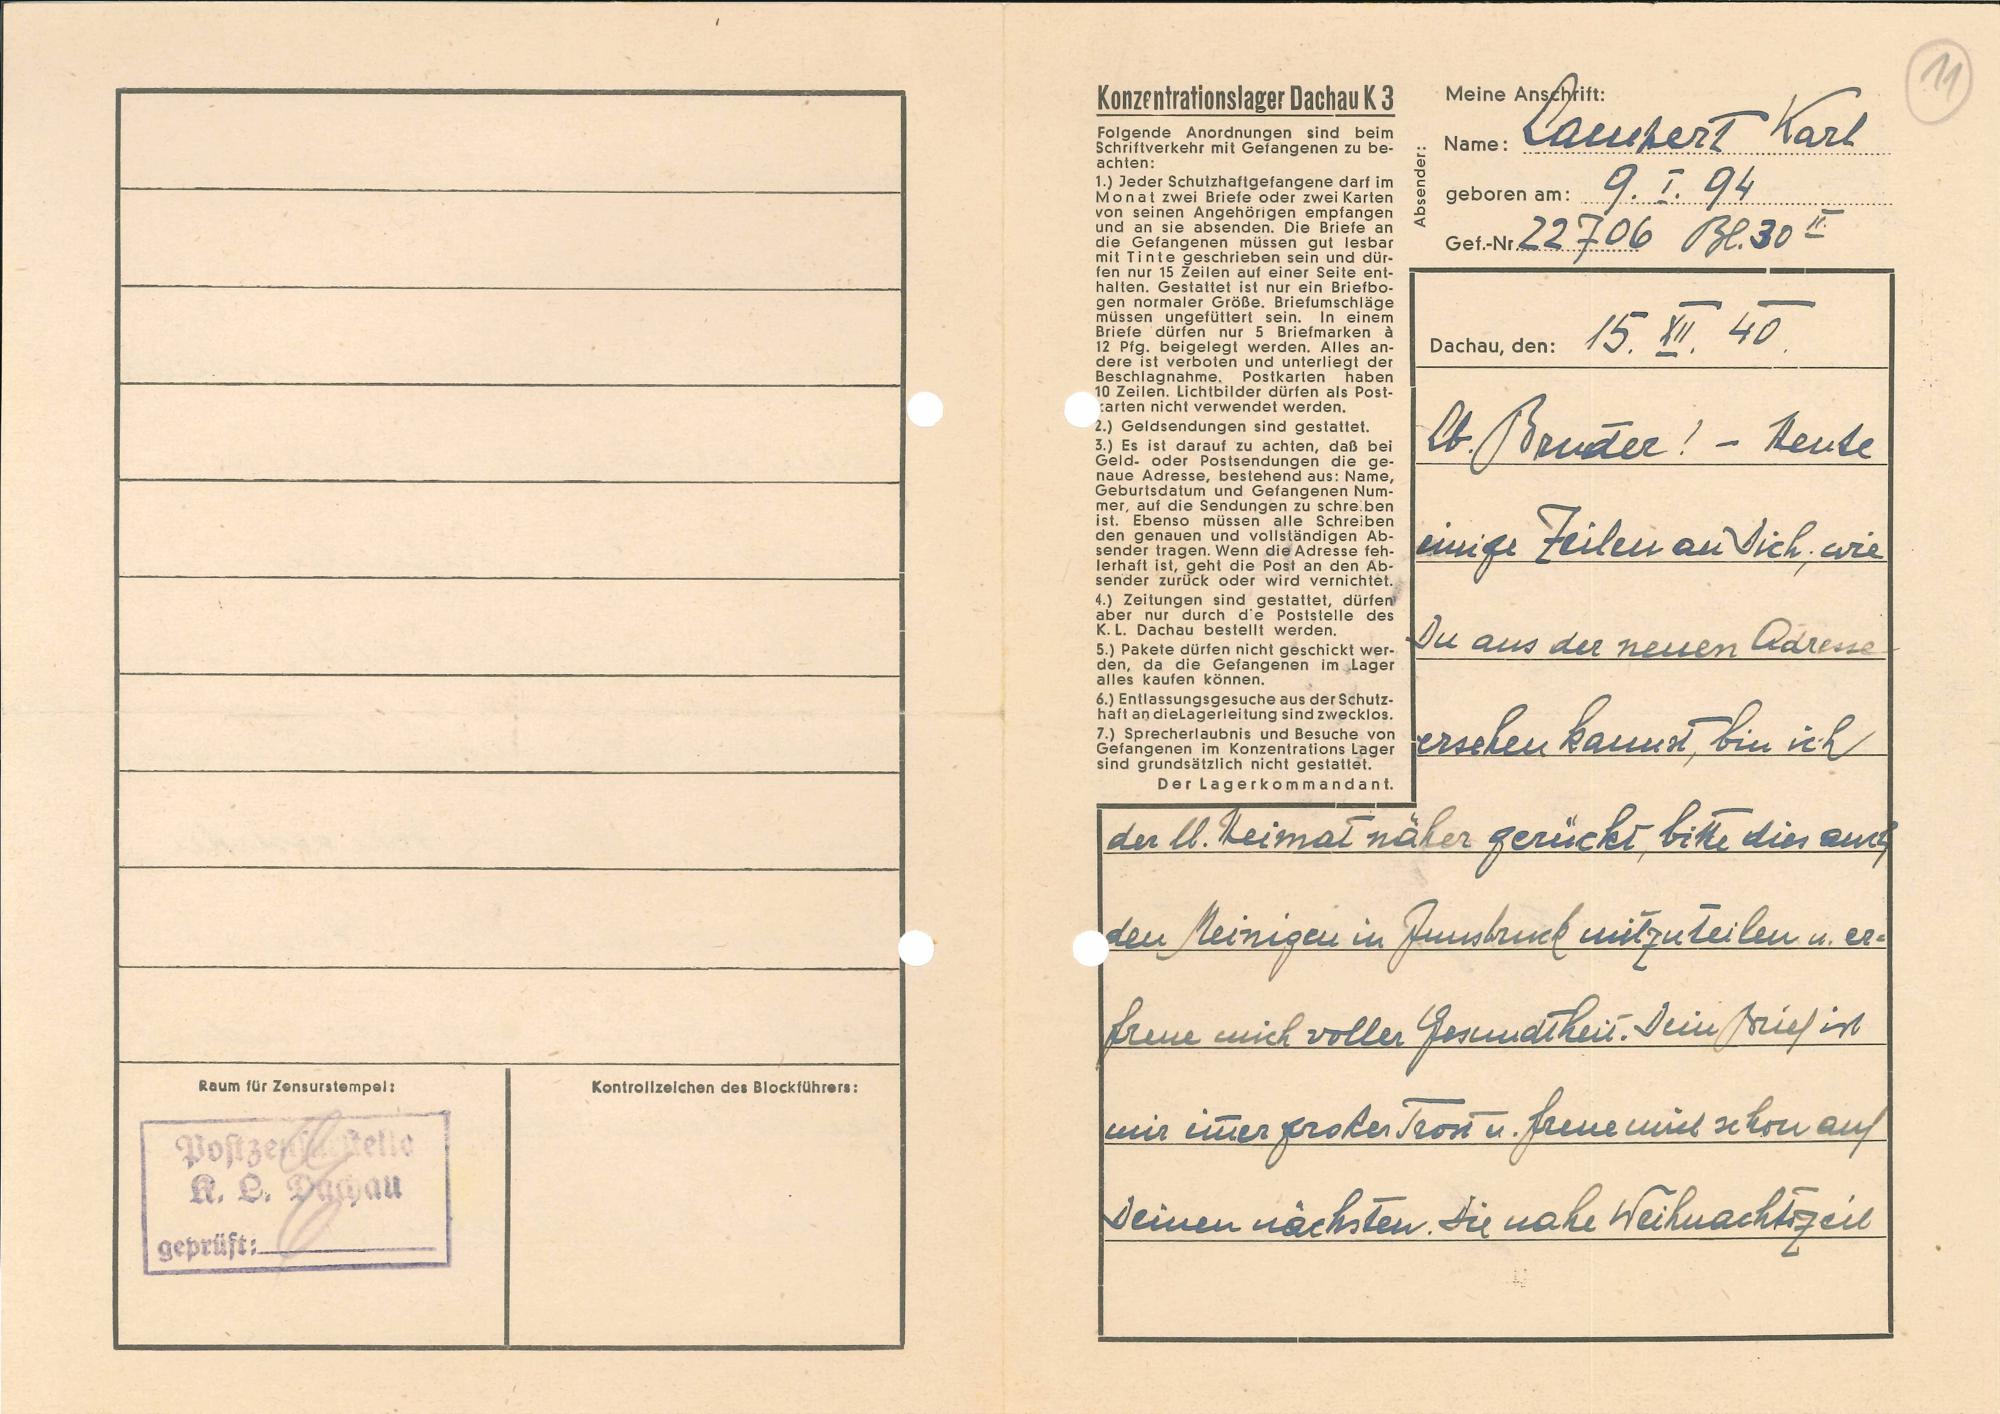 Raum für Zensurstempel:
Postzensurstelle
K. L. Dachau
geprüft:
Kontrollzeichen des Blockführers:
11
Konzentrationslager Dachau K 3
Folgende Anordnungen sind beim
Schriftverkehr mit Gefangenen zu be-
achten:
1.) Jeder Schutzhaftgefangene darf im
Monat zwei Briefe oder zwei Karten
von seinen Angehörigen empfangen
und an sie absenden. Die Briefe an
die Gefangenen müssen gut lesbar
mit Tinte geschrieben sein und dür-
fen nur 15 Zeilen auf einer Seite ent-
halten. Gestattet ist nur ein Briefbo-
gen normaler Größe. Briefumschläge
müssen ungefüttert sein. In einem
Briefe dürfen nur 5 Briefmarken à
12 Pfg. beigelegt werden. Alles an-
dere ist verboten und unterliegt der
Beschlagnahme. Postkarten haben
10 Zeilen. Lichtbilder dürfen als Post-
karten nicht verwendet werden.
2.) Geldsendungen sind gestattet.
3.) Es ist darauf zu achten, daß bei
Geld- oder Postsendungen die ge-
naue Adresse, bestehend aus: Name,
Geburtsdatum und Gefangenen Num-
mer, auf die Sendungen zu schreiben
ist. Ebenso müssen alle Schreiben
den genauen und vollständigen Ab-
sender tragen. Wenn die Adresse feh-
lerhaft ist, geht die Post an den Ab-
sender zurück oder wird vernichtet.
4.) Zeitungen sind gestattet, dürfen
aber nur durch die Poststelle des
K. L. Dachau bestellt werden.
5.) Pakete dürfen nicht geschickt wer-
den, da die Gefangenen im Lager
alles kaufen können.
6.) Entlassungsgesuche aus der Schutz-
haft an die Lagerleitung sind zwecklos.
7.) Sprecherlaubnis und Besuche von
Gefangenen im Konzentrations Lager
sind grundsätzlich nicht gestattet.
Der Lagerkommandant.
Absender:
Meine Anschrift:
Name: Lampert Karl
geboren am: 9. I. 94
Gef.-Nr. 22706 Bl. 30 II.
Dachau, den: 15. XII. 40.
Lb. Bruder! – Heute
einige Zeilen an Dich, wie
Du aus der neuen Adresse
ersehen kannst, bin ich
der lb. Heimat näher gerückt, bitte dies auch
den Meinigen in Innsbruck mitzuteilen u. er=
freue mich voller Gesundheit. Dein Brief ist
mir im̅er großer Trost u. freue mich schon auf
Deinen nächsten. Die nahe Weihnachtszeit